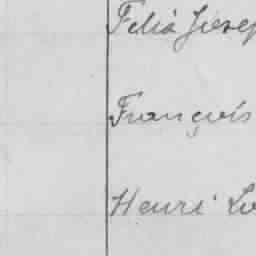 Felix Josep
François
Henri Lo